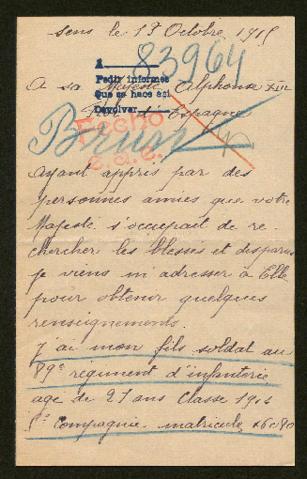 Sens le 17 Octobre 1915
83964
A
Pedir informes
Que se hace así
Devolver
A sa Majesté Alphonse XIII
Espagne
Fecho
e.a.e.
Brun
ayant appris par des
personnes amies que votre
Majesté s'occupait de re
chercher les blessés et disparus
je viens m'adresser à Elle
pour obtenir quelques
renseignements.
J'ai mon fils soldat au
89e régiment d'infanterie
age de 21 ans classe 1914
Compagnie matricule